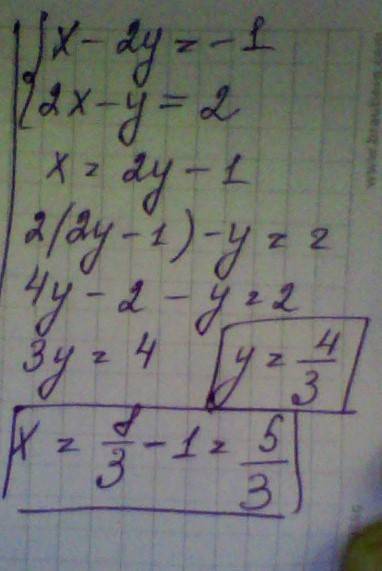 x - 2y = -1
2x - y = 2
x = 2y - 1
2(2y - 1) - y = 2
4y - 2 - y = 2
3y = 4 y = 4/3
x = 8/3 - 1 = 5/3